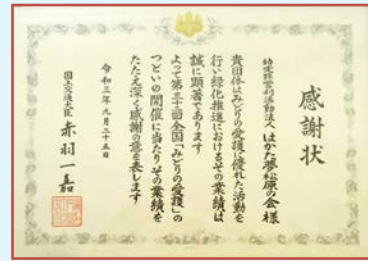 感謝状
特定非営利活動法人 はかた夢松原の会 様
貴団体はみどりの愛護に優れた活動を
行い緑化推進におけるその業績は
誠に顕著であります
よって第三十二回全国「みどりの愛護」の
つどいの開催に当たりその業績を
たたえ深く感謝の意を表します
令和三年九月二十五日
国土交通大臣 赤羽一嘉